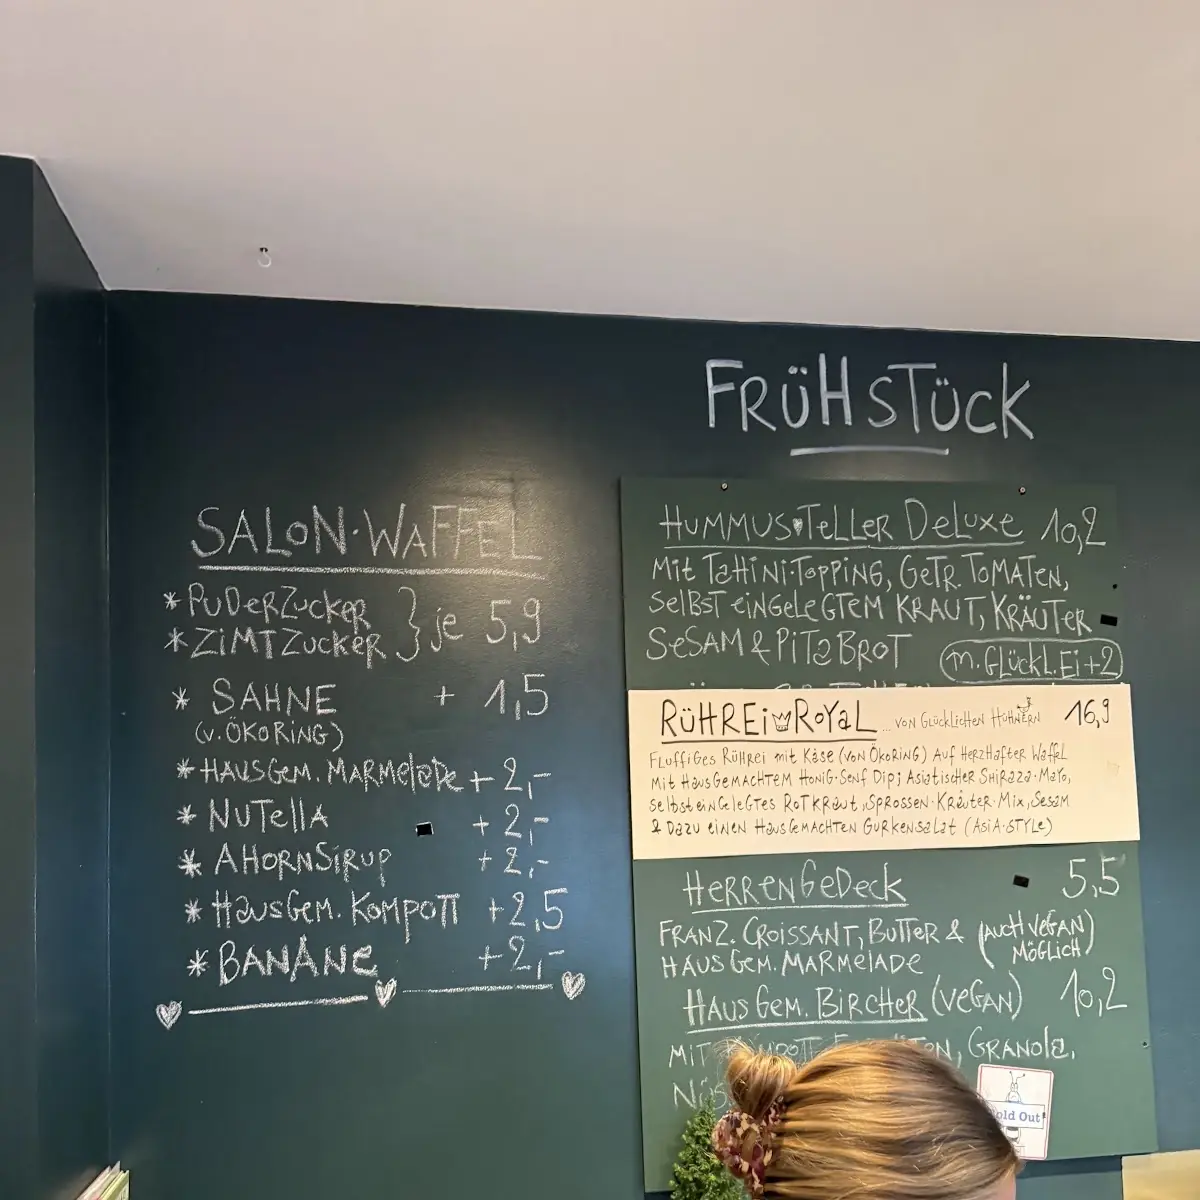 SALON·WAFFEL
* PUDERZUCKER } je 5,9
* ZIMTZUCKER
* SAHNE + 1,5
(v. ÖKORING)
* HAUSGEM. MARMELADE + 2,-
* NUTELLA + 2,-
* AHORNSIRUP + 2,-
* HAUSGEM. KOMPOTT + 2,5
* BANANE + 2,-
FRÜHSTÜCK
HUMMUS♥TELLER DELUXE 10,2
MIT TAHINI·TOPPING, GETR. TOMATEN,
SELBST EINGELEGTEM KRAUT, KRÄUTER
SESAM & PITABROT (M. GLÜCKL. EI +2)
RÜHREI ROYAL ... VON GLÜCKLICHEN HÜHNERN 16,9
FLUFFIGES RÜHREI MIT KÄSE (VON ÖKORING) AUF HERZHAFTER WAFFEL
MIT HAUSGEMACHTEM HONIG·SENF DIP; ASIATISCHER SHIRAZA·MAYO,
SELBSTEINGELEGTES ROTKRAUT, SPROSSEN·KRÄUTER·MIX, SESAM
& DAZU EINEN HAUSGEMACHTEN GURKENSALAT (ASIA·STYLE)
HERRENGEDECK 5,5
FRANZ. CROISSANT, BUTTER & (AUCH VEGAN
HAUSGEM. MARMELADE MÖGLICH)
HAUSGEM. BIRCHER (VEGAN) 10,2
MIT GRANOLA,
old Out